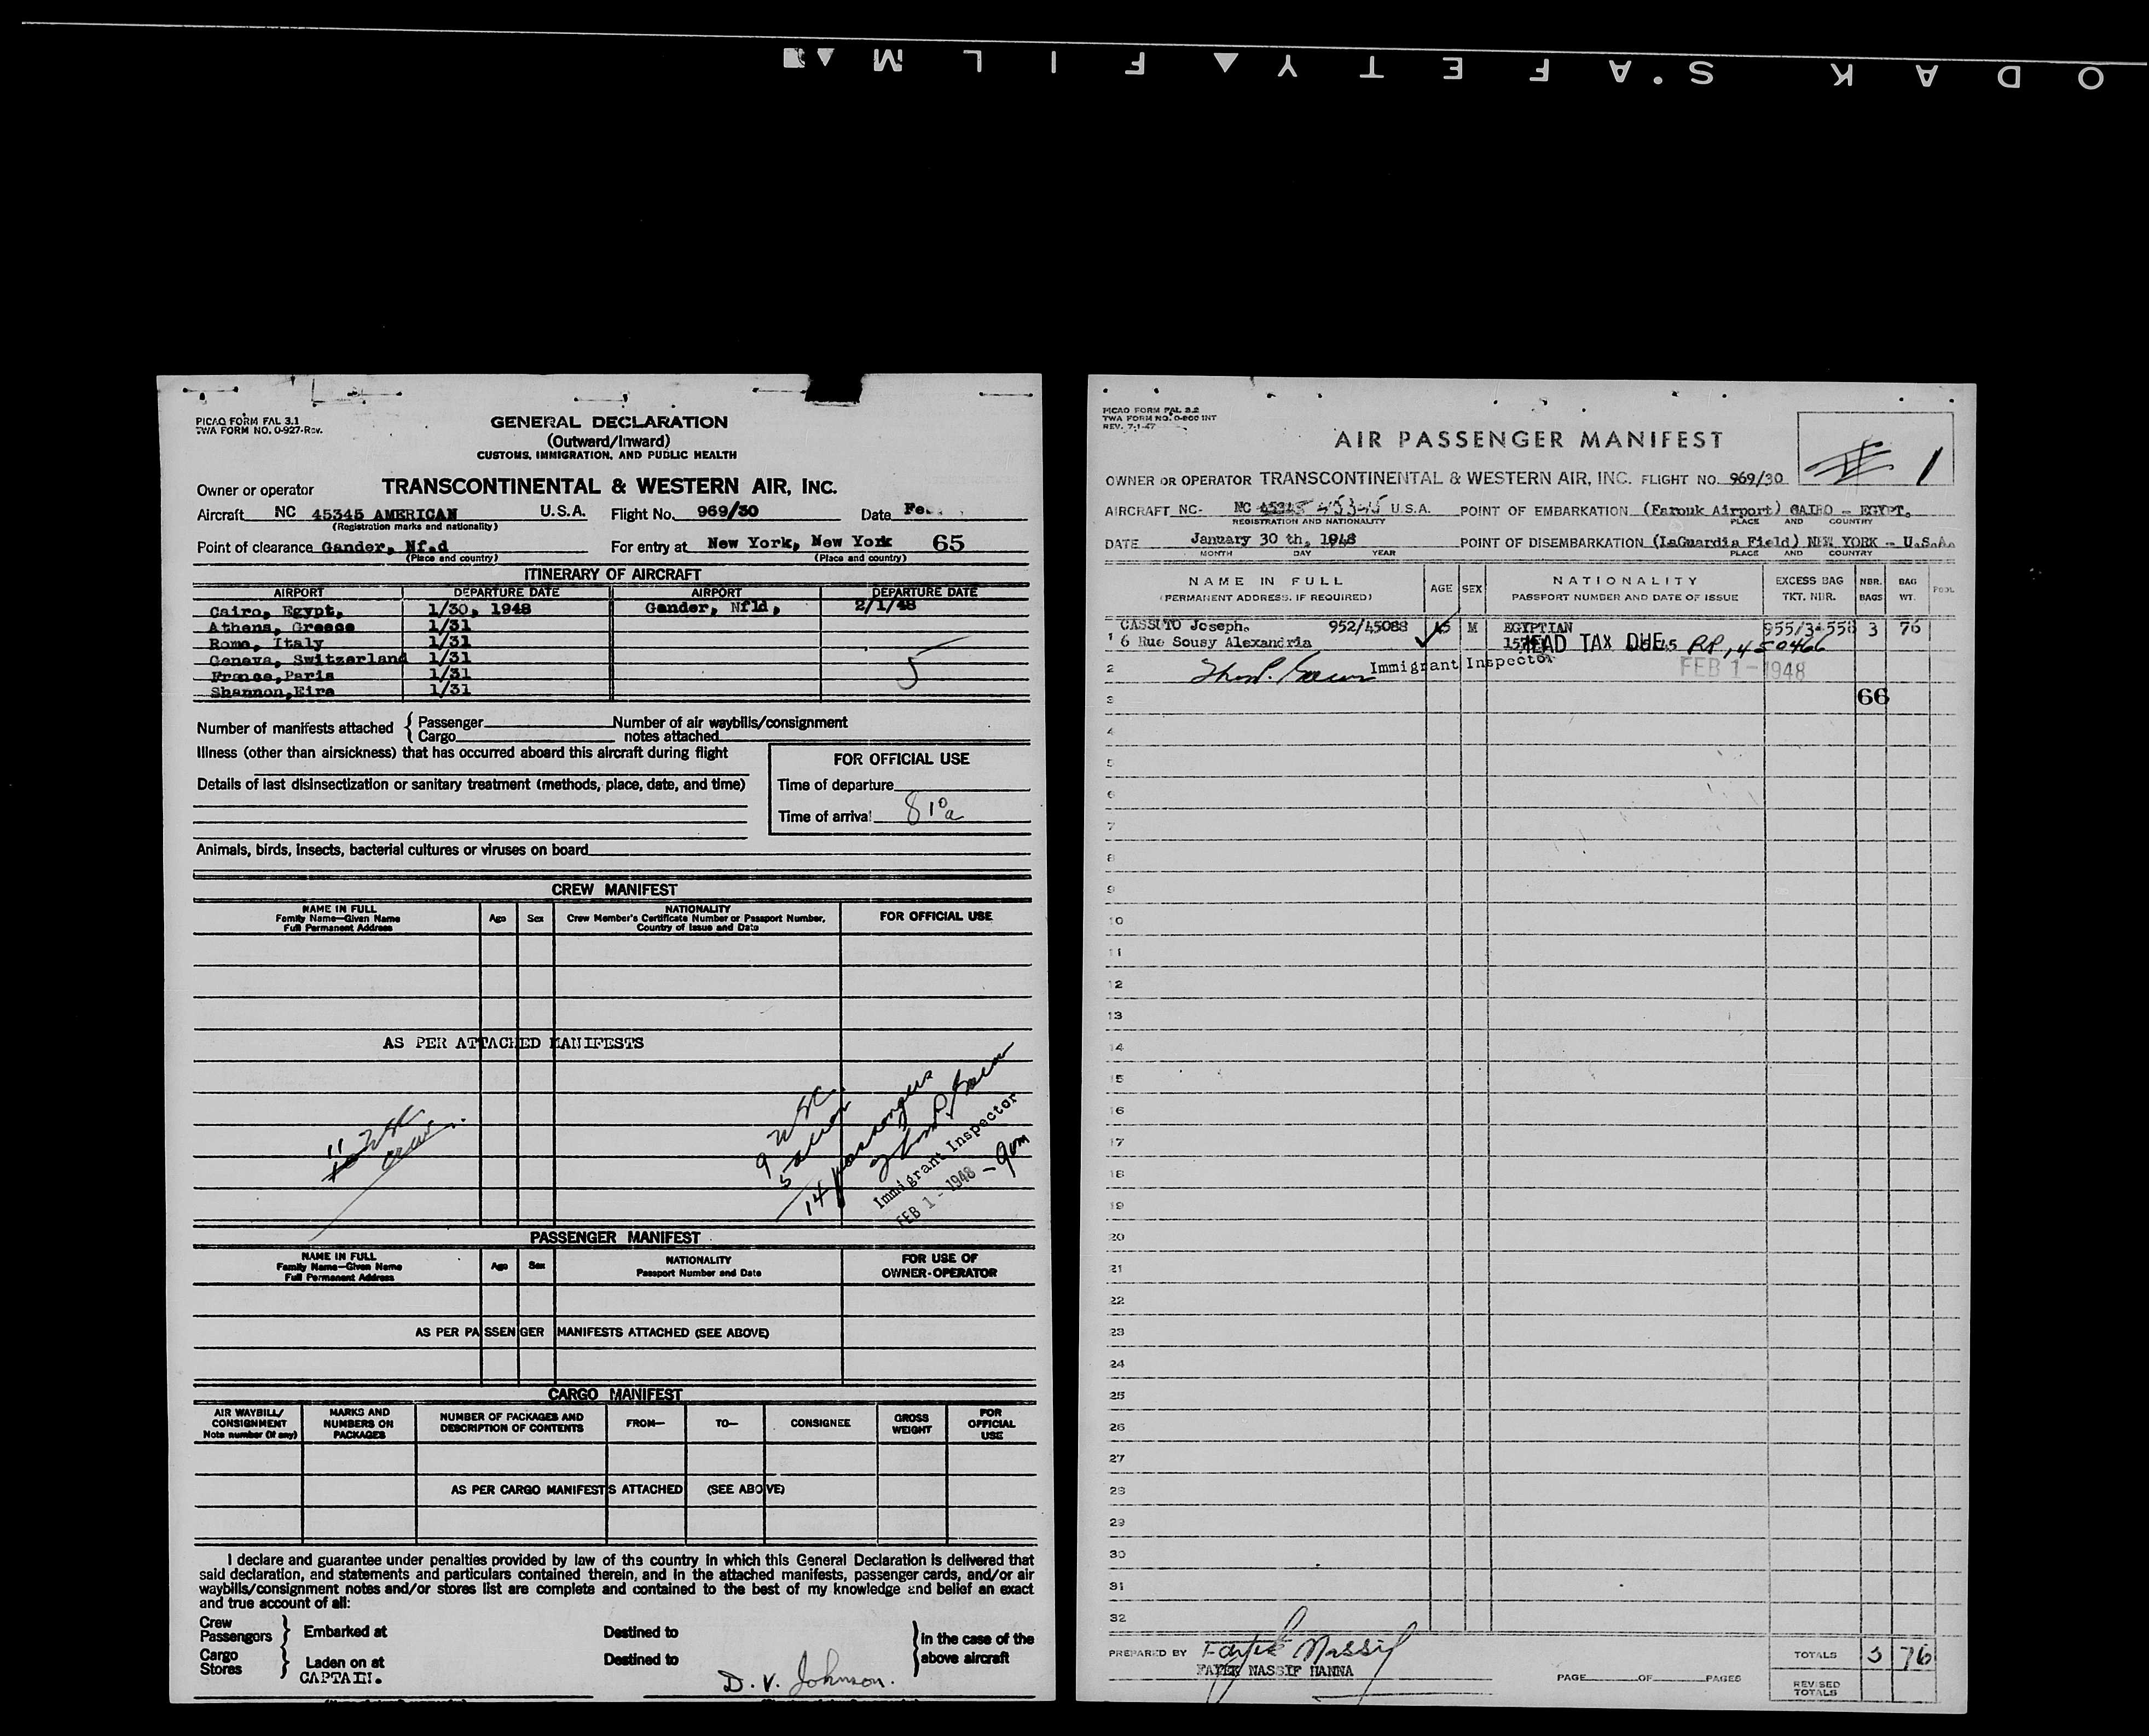 KODAK S'AFETY FILM
PICAO FORM FAL 3.1
TWA FORM NO. 0-927-Rev.
GENERAL DECLARATION
(Outward/Inward)
CUSTOMS, IMMIGRATION, AND PUBLIC HEALTH
Owner or operator TRANSCONTINENTAL & WESTERN AIR, INC.
Aircraft NC 45345 AMERICAN U.S.A. Flight No. 969/30 Date Fe
(Registration marks and nationality)
Point of clearance Gander, Nf.d For entry at New York, New York 65
(Place and country) (Place and country)
ITINERARY OF AIRCRAFT
AIRPORT DEPARTURE DATE AIRPORT DEPARTURE DATE
Cairo, Egypt, 1/30, 1948 Gander, Nfld, 2/1/48
Athens, Greece 1/31
Rome, Italy 1/31
Geneva, Switzerland 1/31
France, Paris 1/31
Shannon, Eire 1/31
5
Number of manifests attached { Passenger Number of air waybills/consignment
Cargo notes attached
Illness (other than airsickness) that has occurred aboard this aircraft during flight
FOR OFFICIAL USE
Details of last disinsectization or sanitary treatment (methods, place, date, and time)
Time of departure
Time of arrival 8 10 a
Animals, birds, insects, bacterial cultures or viruses on board
CREW MANIFEST
NAME IN FULL
Family Name—Given Name
Full Permanent Address
Age Sex
NATIONALITY
Crew Member's Certificate Number or Passport Number,
Country of Issue and Date
FOR OFFICIAL USE
AS PER ATTACHED MANIFESTS
11 USC
crew
9 USC
5 alien
14 passengers
Immigrant Inspector
FEB 1 - 1948 - 9am
PASSENGER MANIFEST
NAME IN FULL
Family Name—Given Name
Full Permanent Address
Age Sex
NATIONALITY
Passport Number and Date
FOR USE OF
OWNER-OPERATOR
AS PER PASSENGER MANIFESTS ATTACHED (SEE ABOVE)
CARGO MANIFEST
AIR WAYBILL/
CONSIGNMENT
Note number (if any)
MARKS AND
NUMBERS ON
PACKAGES
NUMBER OF PACKAGES AND
DESCRIPTION OF CONTENTS
FROM— TO— CONSIGNEE
GROSS
WEIGHT
FOR
OFFICIAL
USE
AS PER CARGO MANIFESTS ATTACHED (SEE ABOVE)
I declare and guarantee under penalties provided by law of the country in which this General Declaration is delivered that
said declaration, and statements and particulars contained therein, and in the attached manifests, passenger cards, and/or air
waybills/consignment notes and/or stores list are complete and contained to the best of my knowledge and belief an exact
and true account of all:
Crew
Passengers } Embarked at Destined to
Cargo
Stores } Laden on at Destined to
} in the case of the
above aircraft
CAPTAIN. D. V. Johnson.
PICAO FORM FAL 3.2
TWA FORM NO. 0-800 INT
REV. 7-1-47
AIR PASSENGER MANIFEST
1
OWNER OR OPERATOR TRANSCONTINENTAL & WESTERN AIR, INC. FLIGHT NO. 969/30
AIRCRAFT NC- NC 45345 U.S.A. POINT OF EMBARKATION (Farouk Airport) CAIRO - EGYPT.
REGISTRATION AND NATIONALITY PLACE AND COUNTRY
DATE January 30 th, 1948 POINT OF DISEMBARKATION (LaGuardia Field) NEW YORK - U.S.A.
MONTH DAY YEAR PLACE AND COUNTRY
NAME IN FULL
(PERMANENT ADDRESS, IF REQUIRED)
AGE SEX
NATIONALITY
PASSPORT NUMBER AND DATE OF ISSUE
EXCESS BAG
TKT. NBR.
NBR.
BAGS
BAG
WT.
POOL
1 CASSUTO Joseph. 952/45088 45 M EGYPTIAN 955/34558 3 76
6 Rue Sousy Alexandria HEAD TAX DUE
2 Immigrant Inspector FEB 1 - 1948
3 66
4
5
6
7
8
9
10
11
12
13
14
15
16
17
18
19
20
21
22
23
24
25
26
27
28
29
30
31
32
PREPARED BY Fayek Nassif
FAYEK NASSIF HANNA
PAGE OF PAGES
TOTALS 3 76
REVISED
TOTALS